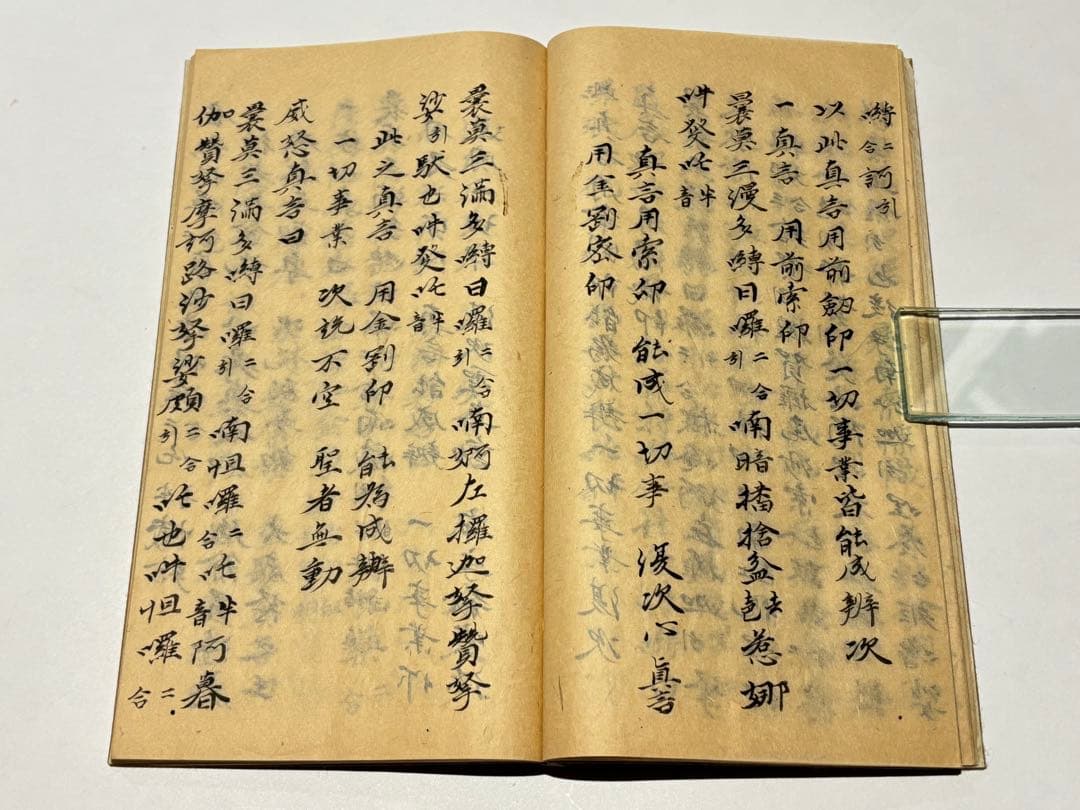 嚩二合訶引
以此真言用前劒印一切事業皆能成辨次
一真言 用前索印
曩莫三漫多嚩日囉二合引喃暗播捨盆去惹娜
吽發吒半音
真言用索印能成一切事 復次心真言
用金剛密印
曩莫三滿多嚩日囉二合引喃婀左攞迦拏贊拏
娑引馱也吽發吒半音
此之真言 用金剛印 能為成辦
一切事業 次說不空 聖者無動
威怒真言曰
曩莫三滿多嚩日囉二合引喃怛囉二合吒半音阿暮
伽贊拏摩訶路沙拏娑頗二合引吒也吽怛囉二合